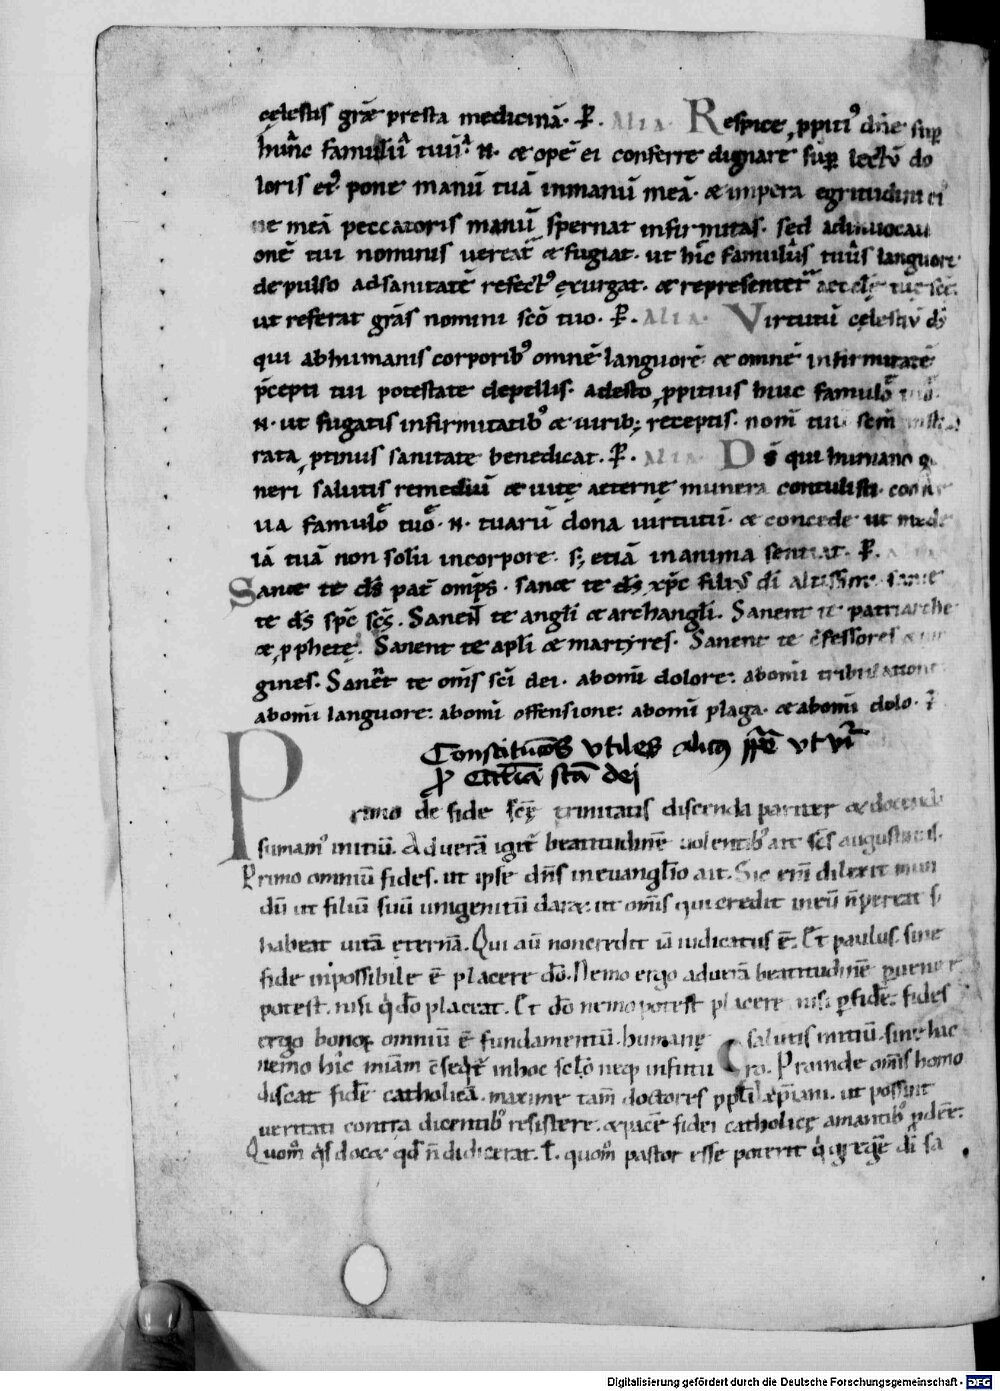 cęlestis grãe presta medicinã. P̃. Alia. Respice, ppiti⁹ dñe sup
hũnc famuliũ tuũ. N. & opẽ ei conferre dignare sup lectũ do
loris et⁹. pone manũ tuã inmanũ meã. & impera egritudini ei⁹
ne meã peccatoris manũ spernat infirmitas. sed adinuocati
onẽ tui nominis uereat̃ & fugiat. ut hic famulus tuus languore
depulso adsanitatẽ refect⁹ exurgat. & representet̃ aecclę tuę scę.
ut referat grãs nomini scõ tuo. P̃. Alia. Virtutũ cęlestiũ ds̃
qui abhumanis corporib⁹ omnẽ languorẽ & omnẽ infirmitatẽ
p̃cepti tui potestate depellis. adesto, ppitius huic famulo tuo.
N. ut fugatis infirmitatib⁹ & uirib; receptis. nom̃ tuũ sc̃m
rata, ptinus sanitate benedicat. P̃. Alia. Ds̃ qui humano ge
neri salutis remediũ & uitę aeternę munera contulisti. conser
ua famulo tuo. N. tuarũ dona uirtutũ. & concede ut mede
lã tuã non solũ incorpore. s; etiã inanima sentiat. P̃.
Sanet te ds̃ pat̃ omp̃s. sanet te ds̃ xp̃c filius di altissimi. sanet
te ds̃ sp̃c scs̃. Sanent te angli & archangli. Sanent te patriarche
& p phetę. Sanent te apli & martyres. Sanent te c̃fessores & uir
gines. Sanent te om̃s sci dei. abomi dolore: abomi tribulatione
abomi languore: abomi offensione: abomi plaga. & abomi dolo.
Constitucõs vtiles
dej
Primo de fide scę trinitatis discenda pariter & docenda
sumam⁹ initiũ. Aduerã igit̃ beatitudinẽ uolentib⁹ ait scs̃ augustinus.
Primo omniũ fides. ut ipse dñs inevanglio ait. Sic eñi dilexit mun
dũ ut filiũ suũ unigenitũ daret ut om̃s qui credit ineũ ñ pereat s;
habeat uitã ęternã. Qui aũ noncredit iã iudicatus ẽ. Et paulus. sine
fide inpossibile ẽ placere dõ. Nemo ergo aduerã beatitudinẽ puenire
potest. nisi q dõ placeat. Et dõ nemo potest placere nisi p fidẽ. fides
ergo bonoꝝ omniũ ẽ fundamentũ. humanę salutis initiũ. sine hac
nemo hic c̃seqt̃ inhoc sclo neq; infutu ro. Proinde om̃s homo
discat fidẽ catholicã. maxime tam̃ doctores ppli xp̃iani. ut possint
ueritati contra dicentib⁹ resistere. & pacẽ fidei catholicę amantib⁹ pdẽe.
Quom̃ qs̃ docet qd̃ ñ didicerat. ł quom̃ pastor esse poterit q gregẽ di